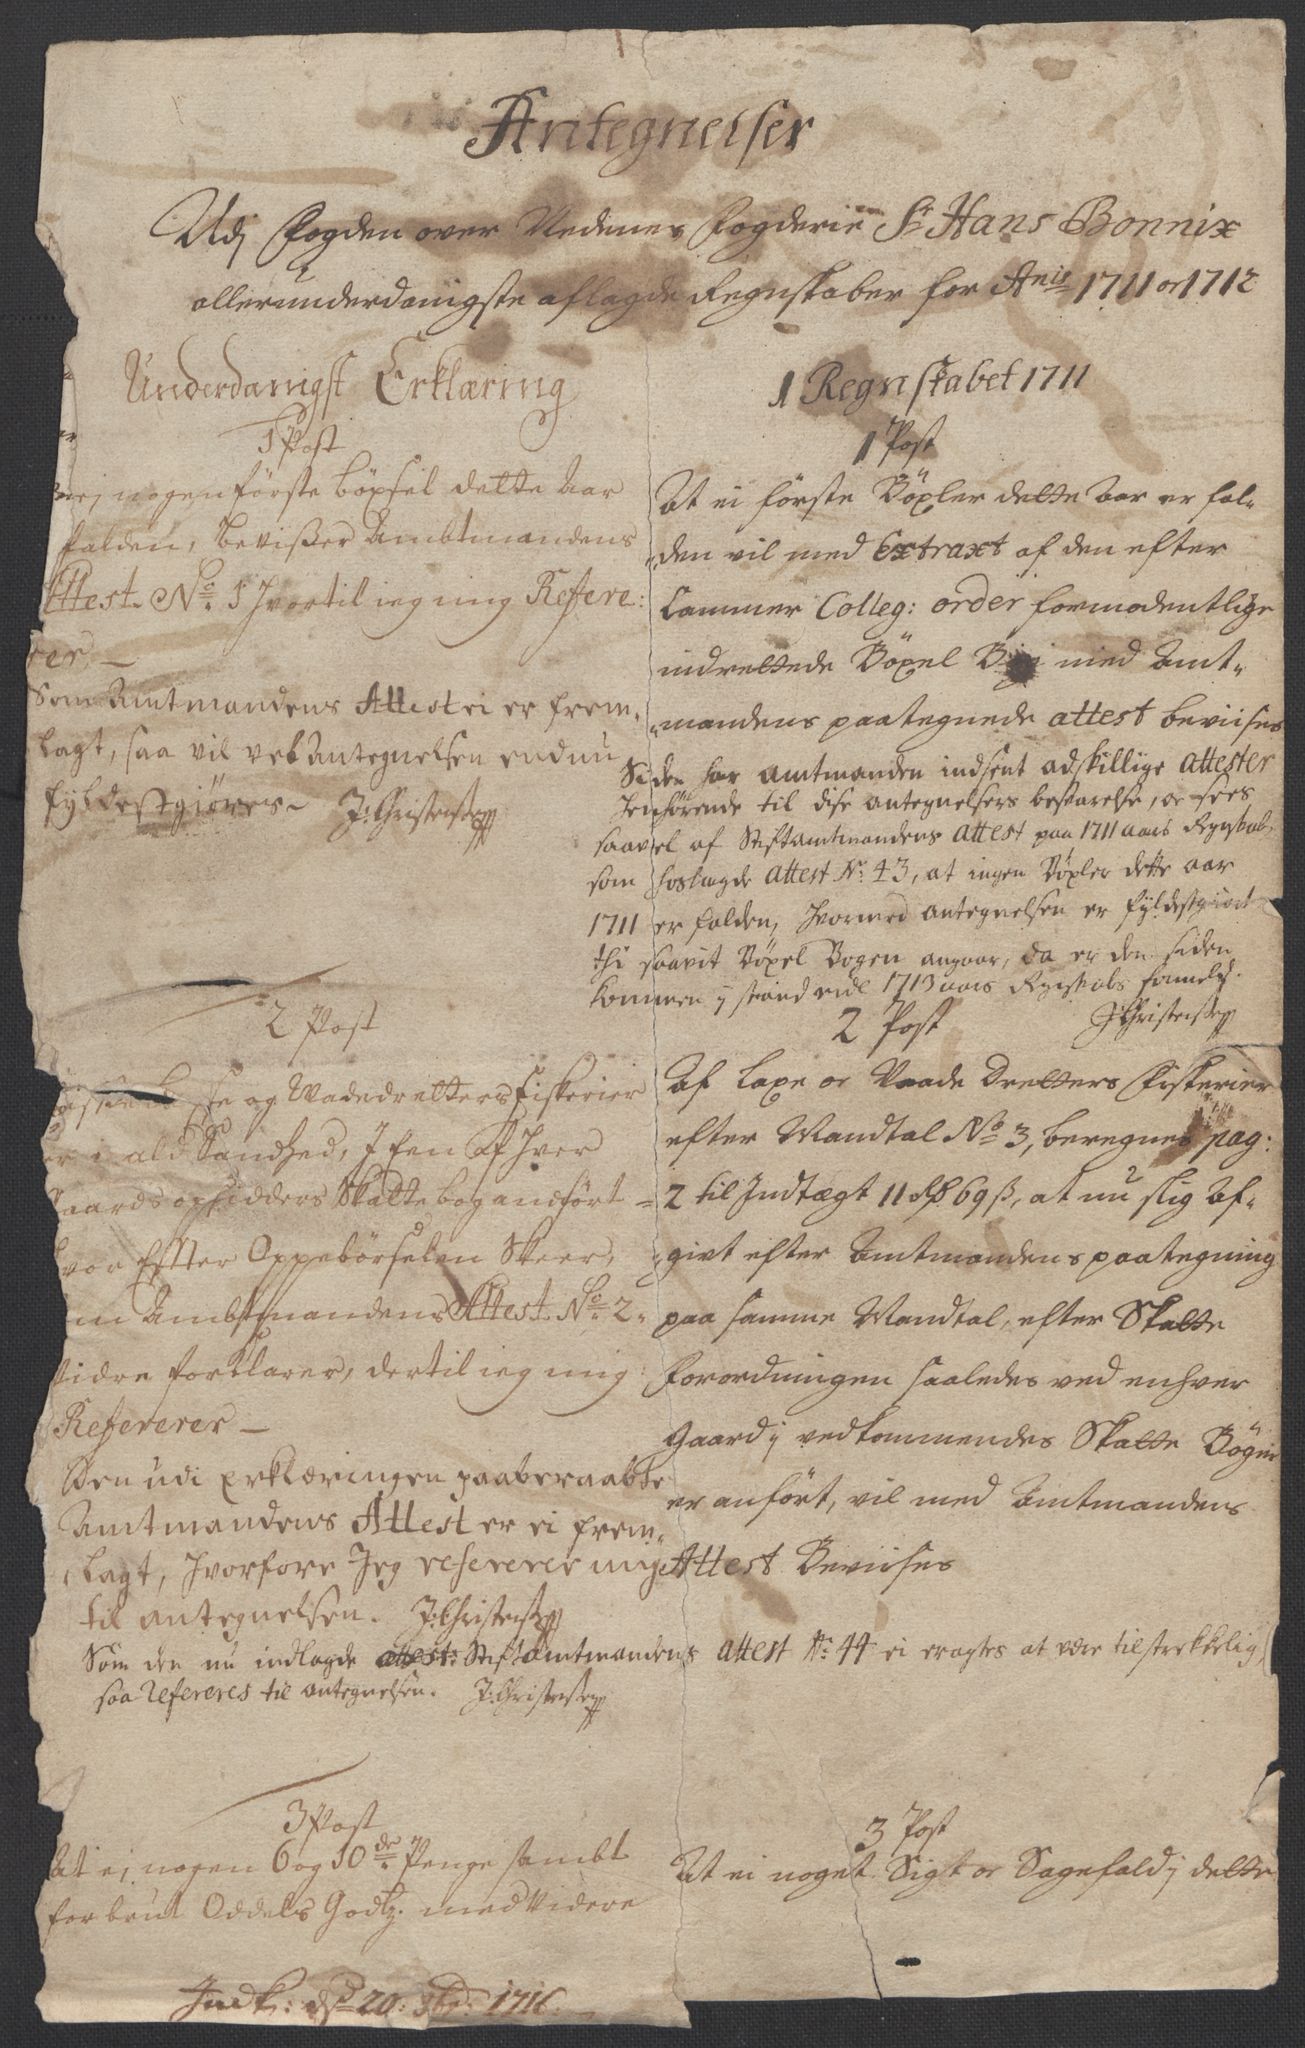 Antegnelser
Udj Fogden over Nedenes Fogderie Sr Hans Bonnix
allerunderdanigste aflagde Regnskaber for Anis 1711 or 1712
Underdanigst Erklæring
1 Post
ej nogen förste böxsel dette Aar
falden, bevißer Ambtmandens
Attest No 1 hvortil ieg mig Refere:
rer, —
Som Amtmandens Attest ei er frem-
lagt, saa vil vel Antegnelsen endnu
fyldestgiöres. J: Christens
2 Post
og Vadedretters Fiskerier
er i ald Sandhed, J Een af hver
Gaards opsidders Skatte bog andfört
hvor Effter Oppebörselen Skeer,
Ambtmandens Attest No 2
vidre forklarer, dertil ieg mig
Refererer —
Den udi Erklæringen paaberaabte
Amtmandens Attest er ei frem-
lagt, hvorfore Jeg refererer mig
til antegnelsen. J: Christens
Som den nu indlagde Stiftamtmandens attest No: 44 ei eragtes at være tilstrekkelig,
saa refereres til antegnelsen. J: Christens
3 Post
At ej nogen 6 og 10de Penge sambt
for brut Oddels Godtz. med Videre
1 Regnskabet 1711
1 Post
At ei förste Böxler dette Aar er fal-
den vil med Extraxt af den efter
Cammer Colleg: order formodentlige
indrettede Böxel Bog med Amt-
mandens paategnede attest beviises
Siden har amtmanden indsent adskillige attester
henhørende til disse antegnelsers besvarelse, oc sees
saavel af Stiftamtmandens attest paa 1711 aars Regnskab,
som hoslagde attest No: 43, at ingen Böxler dette aar
1711 er falden, hvormed antegnelsen er fyldestgiort
thi saavit Böxel Bogen angaar, da er den siden
kommen j stand ved 1713 aars Regnskabs
J: Christens
2 Post
Af Laxe or Vaade Dretters Fiskerier
efter Mandtal No 3, beregnes pag:
2 til Indtægt 11 rdr 69 ß, at nu slig Af-
givt efter Amtmandens paategning
paa samme Mandtal, efter Skatte
Forordningen saaledes ved enhver
Gaard j vedkommendes Skatte Bøger
er anfört, vil med Amtmandens
Attest Beviises
3 Post
At ei noget Sigt or Sagefald j dette
Indk: d 20: 1716.